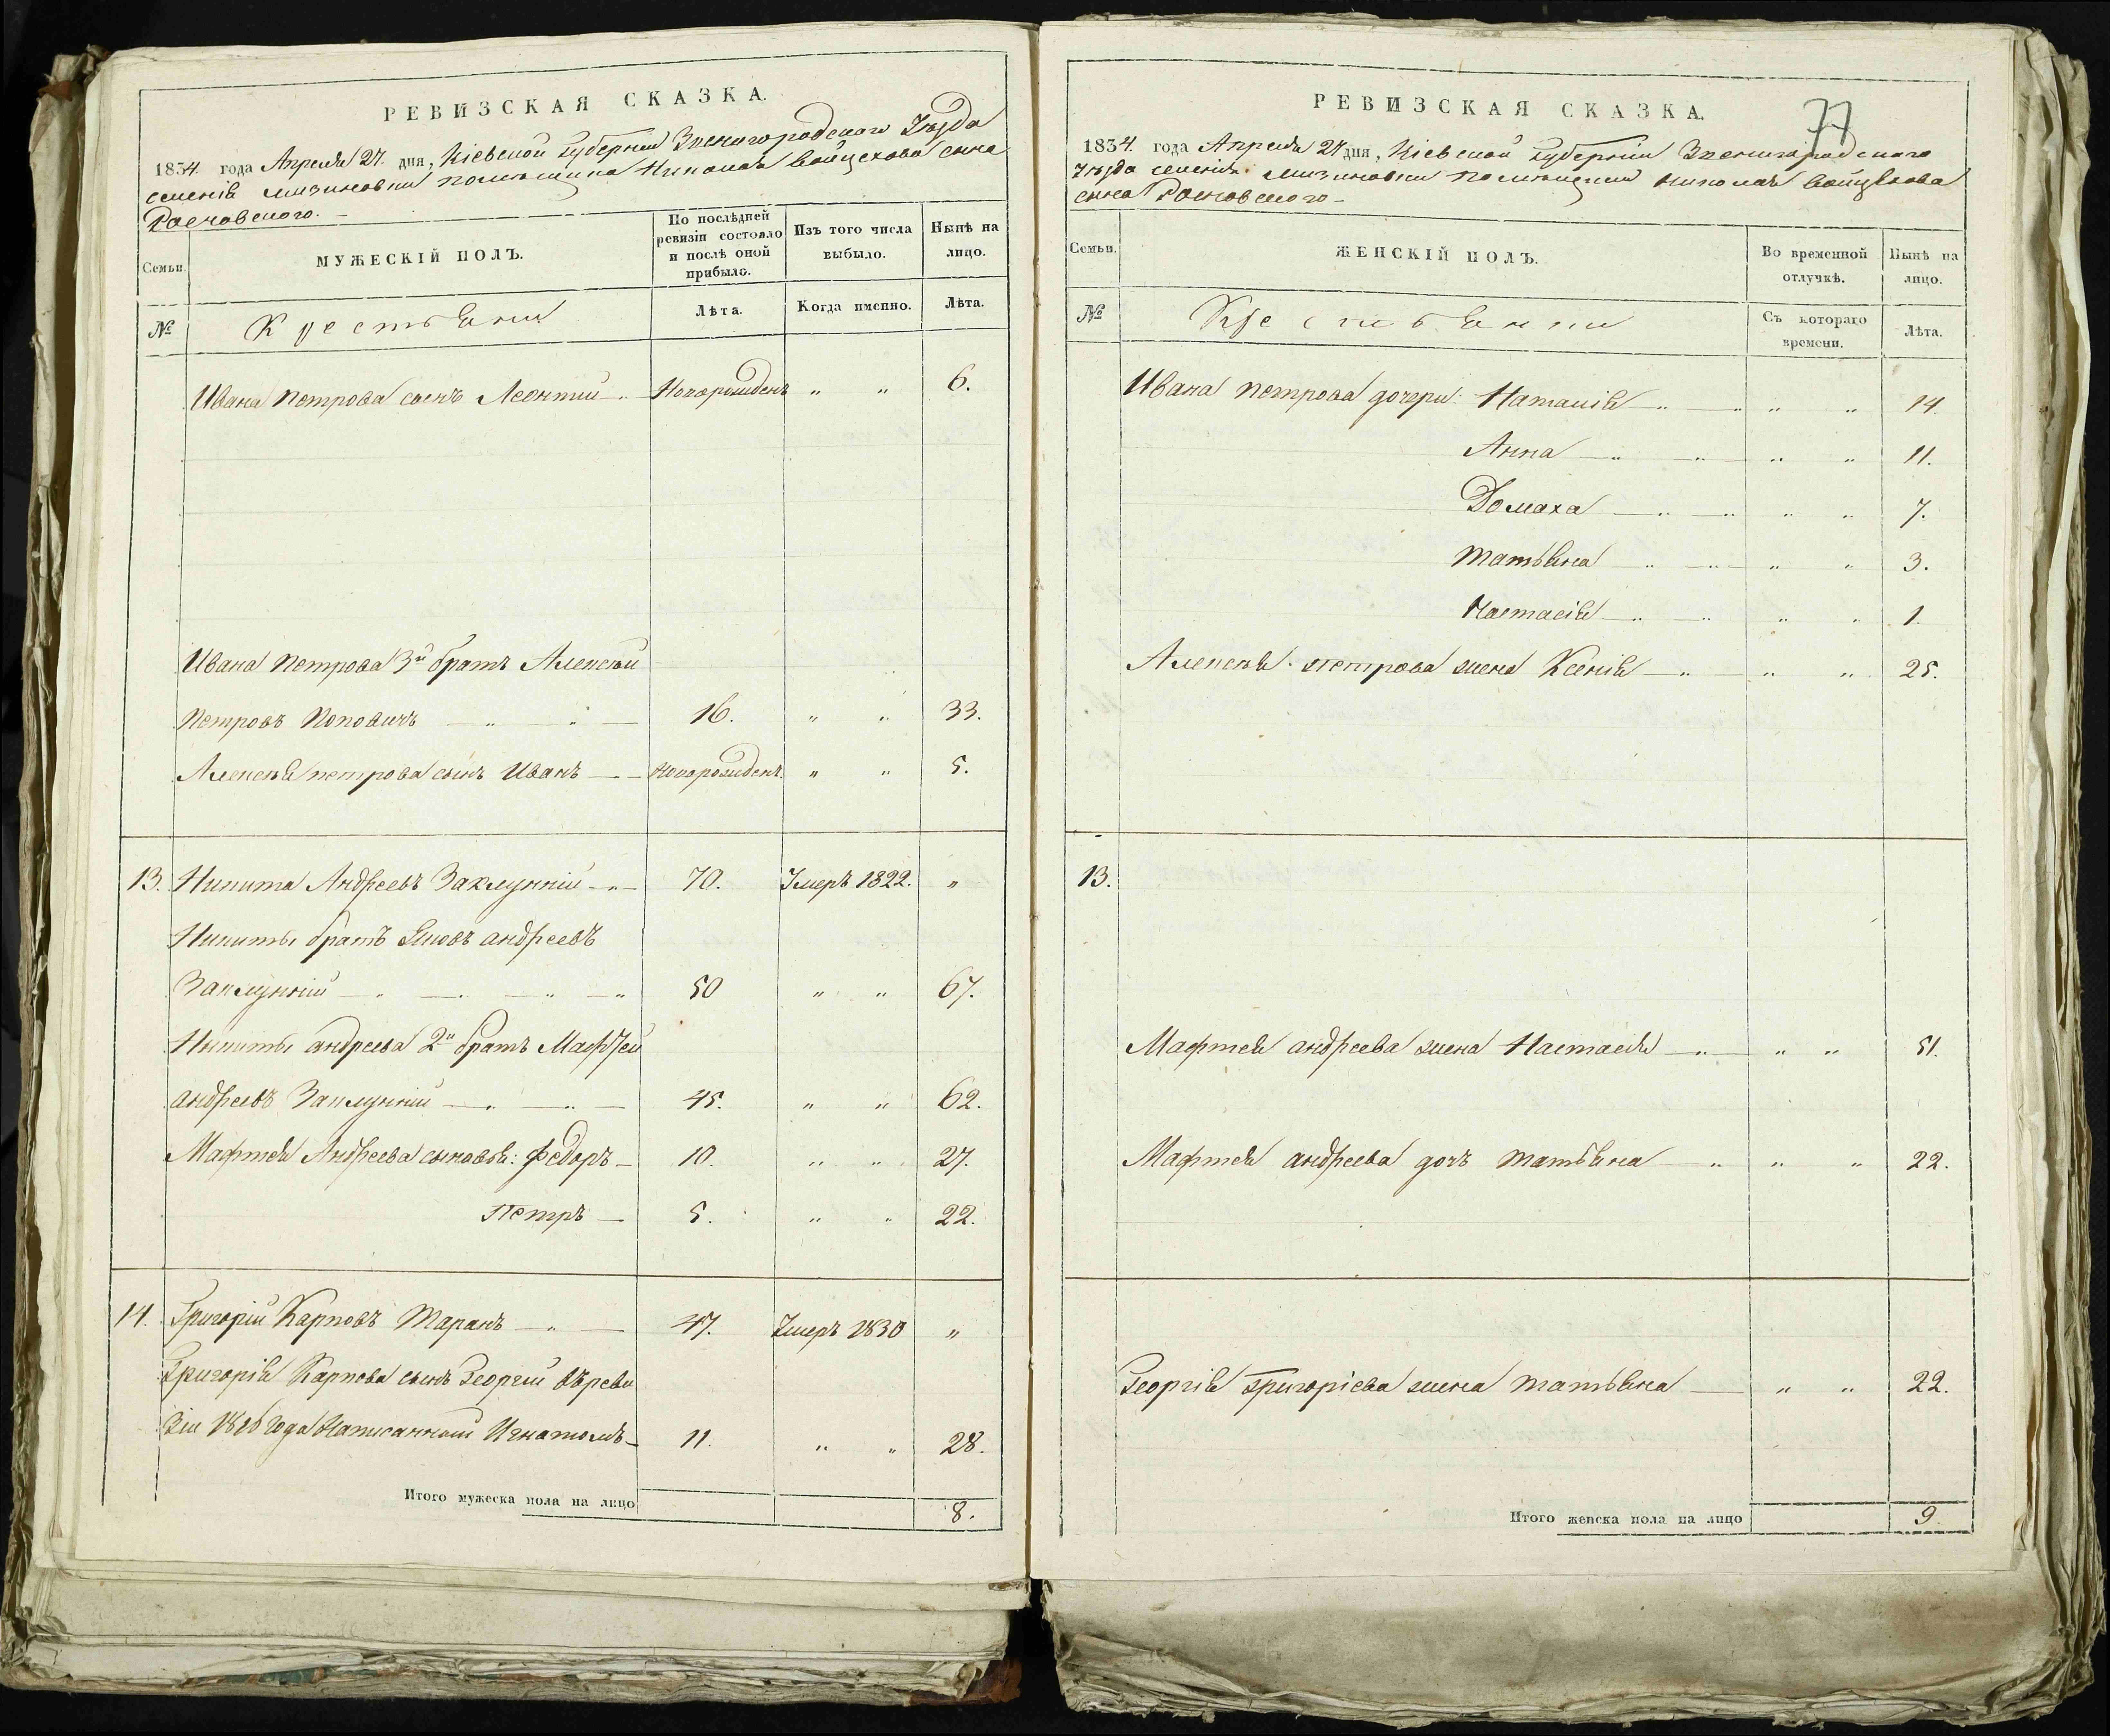 РЕВИЗСКАЯ СКАЗКА.
1834. года Апреля 27. дня, Кіевской губерніи Звенигородского Уѣзда
селенія Мизиновки помѣщика Николая Войцехова сына
Росновского.
Семьи.
МУЖЕСКІЙ ПОЛЪ.
По послѣдней ревизіи состояло и послѣ оной прибыло.
Изъ того числа выбыло.
Нынѣ на лицо.
№
Крестьяни
Лѣта.
Когда именно.
Лѣта.
Ивана Петрова сынъ Леонтий Новорожденъ " " 6.
Ивана Петрова 3й братъ Алексѣй
Петровъ Поповичъ 16. " " 33.
Алексѣя петрова сынъ Иванъ Новорожденъ " " 5.
13. Никита Андреевъ Заклунній 70. Умеръ 1822. "
Никиты братъ Яковъ андреевъ
Заклунній 50 " " 67.
Никиты андреева 2й братъ Мафтей
андреевъ Заклунній 45. " " 62.
Мафтея Андреева сыновья: Федоръ 10. " " 27.
Петръ 5. " " 22.
14. Григорій Карповъ Таранъ 47. Умеръ 1830 "
Григорія Карпова сынъ Георгий въ реви
зіи 1816 года Написанный Игнатомъ 11. " " 28.
Итого мужеска пола на лицо 8.
77
РЕВИЗСКАЯ СКАЗКА.
1834. года Апреля 27 дня, Кіевской губерніи Звенигородского
Уѣзда селения Мизиновки помѣщика Николая Войцѣхова
сына Росновского
Семьи.
ЖЕНСКІЙ ПОЛЪ.
Во временной отлучкѣ.
Нынѣ на лицо.
№
Крестьянки
Съ котораго времени.
Лѣта.
Ивана Петрова дочери: Наталія " " 14
Анна " " 11.
Домаха " " 7.
Татьяна " " 3.
Настасія " " 1.
Алексѣя петрова жена Ксенія " " 25.
13.
Мафтея андреева жена Настасія " " 51.
Мафтея андреева дочъ Татьяна " " 22.
Георгія Григоріева жена Татьяна " " 22.
Итого женска пола на лицо 9.